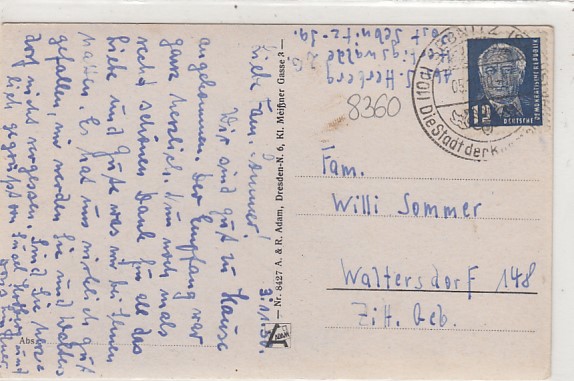 3.11.50.
Liebe Fam. Sommer!
Wir sind gut zu Hause
angekommen. Der Empfang war
ganz herzlich. Nun noch mals
recht schönen Dank für all das
Liebe und Gute was wir bei Ihnen
hatten. Es hat uns wirklich gut
gefallen, wir werden Sie und Walters
dorf nicht vergessen. Sind Sie herz
lich gegrüßt von
und
Abs.
Abs. H. Herberg
Ottendorf
Post Sebnitz-Sa.
8360
— Nr. 8427 A. & R. Adam, Dresden-N. 6, Kl. Meißner Gasse 3 —
A
ADAM
SEBNITZ (SACHS)
(10a)
Die Stadt der K
12
DEUTSCHE
DEMOKRATISCHE REPUBLIK
Fam.
Willi Sommer
Waltersdorf 148
Zitt. Geb.